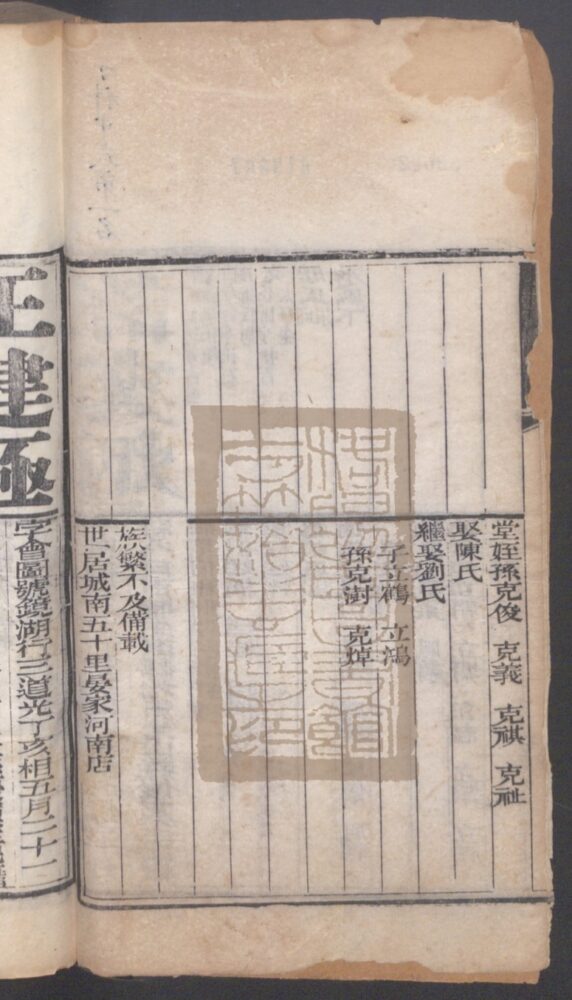 堂姪孫克俊 克義 克祺 克祉
娶陳氏
繼娶劉氏
子立鶴 立鴻
孫克澍 克焯
族繁不及備載
世居城南五十里晏家河南店
王建極
字會圖號鏡湖行三道光丁亥相五月二十一